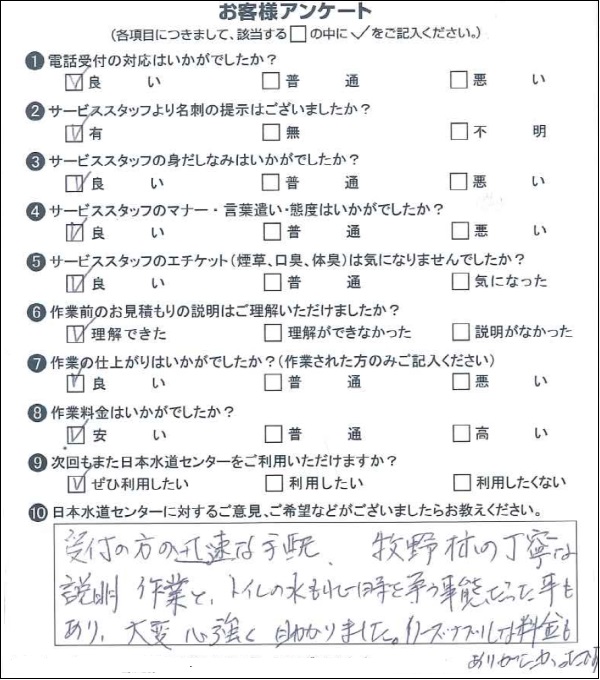 お客様アンケート
(各項目につきまして、該当する□の中に✓をご記入ください。)
❶電話受付の対応はいかがでしたか?
☑良い □普通 □悪い
❷サービススタッフより名刺の提示はございましたか?
☑有 □無 □不明
❸サービススタッフの身だしなみはいかがでしたか?
☑良い □普通 □悪い
❹サービススタッフのマナー・言葉遣い・態度はいかがでしたか?
☑良い □普通 □悪い
❺サービススタッフのエチケット(煙草、口臭、体臭)は気になりませんでしたか?
☑良い □普通 □気になった
❻作業前のお見積もりの説明はご理解いただけましたか?
☑理解できた □理解ができなかった □説明がなかった
❼作業の仕上がりはいかがでしたか?(作業された方のみご記入ください)
☑良い □普通 □悪い
❽作業料金はいかがでしたか?
☑安い □普通 □高い
❾次回もまた日本水道センターをご利用いただけますか?
☑ぜひ利用したい □利用したい □利用したくない
❿日本水道センターに対するご意見、ご希望などがございましたらお教えください。
受付の方の迅速な手配、牧野様の丁寧な
説明 作業と、トイレの水もれで一時を争う事態だった事も
あり、大変心強く助かりました。リーズナブルな料金も
ありがたかったです